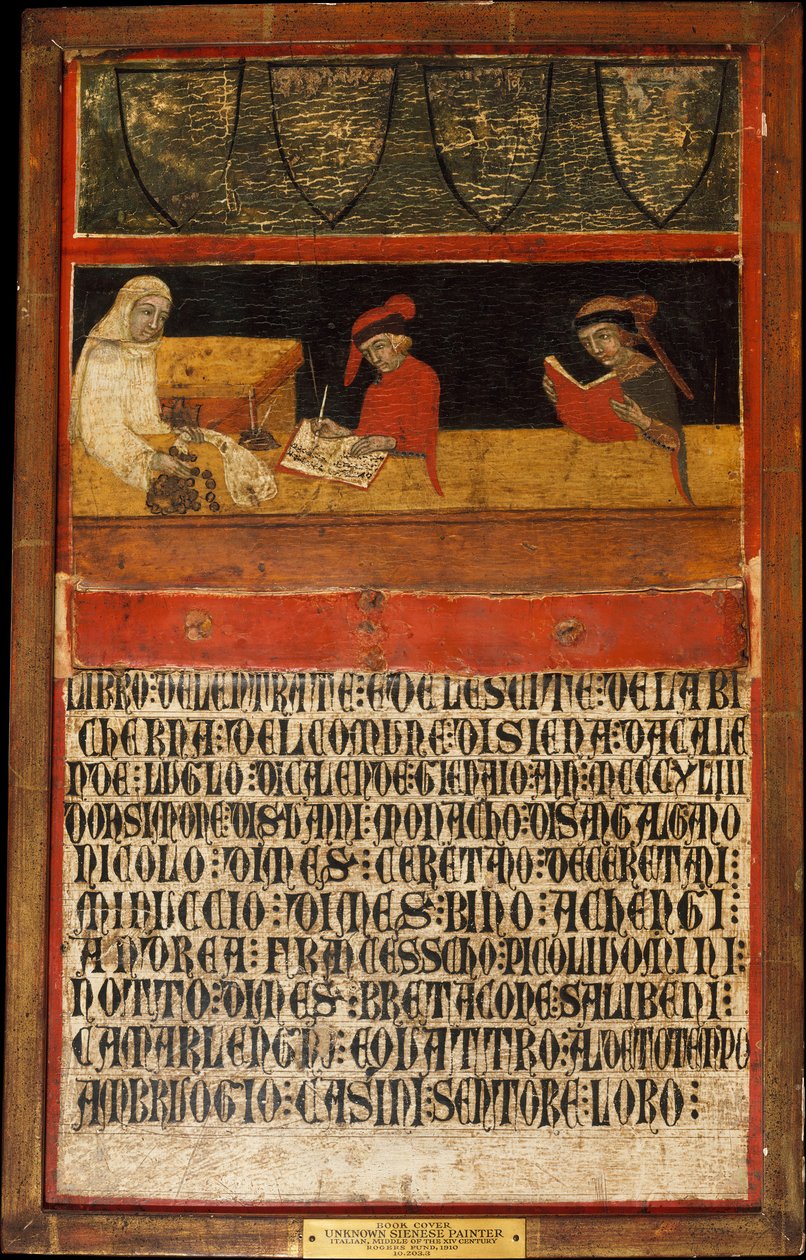 LIBRO : DELENTRATE : EDELESCITE : DELABI
CHERNA : DELCOMUNE : DISIENA : DACALE
NDE : LUGLO : DICALENDE : GIENAIO : MCCCXLIII
DONSIMONE : MONACHO : DISANGALGANO
NICOLO : DIMES : CERETANO : DECERETANI :
MINUCCIO : DIMES : BINO : ACHENGI :
ANDREA : FRANCESSCHO : PICOLIUOMINI :
NOTTO : DIMES : BRETACONE : SALIBENI :
EQUATTRO : ALDETOTENPO
AMBRUOGIO : CASINI : LORO :
BOOK COVER
UNKNOWN SIENESE PAINTER
ITALIAN, MIDDLE OF THE XIV CENTURY
ROGERS FUND, 1910
10.203.3